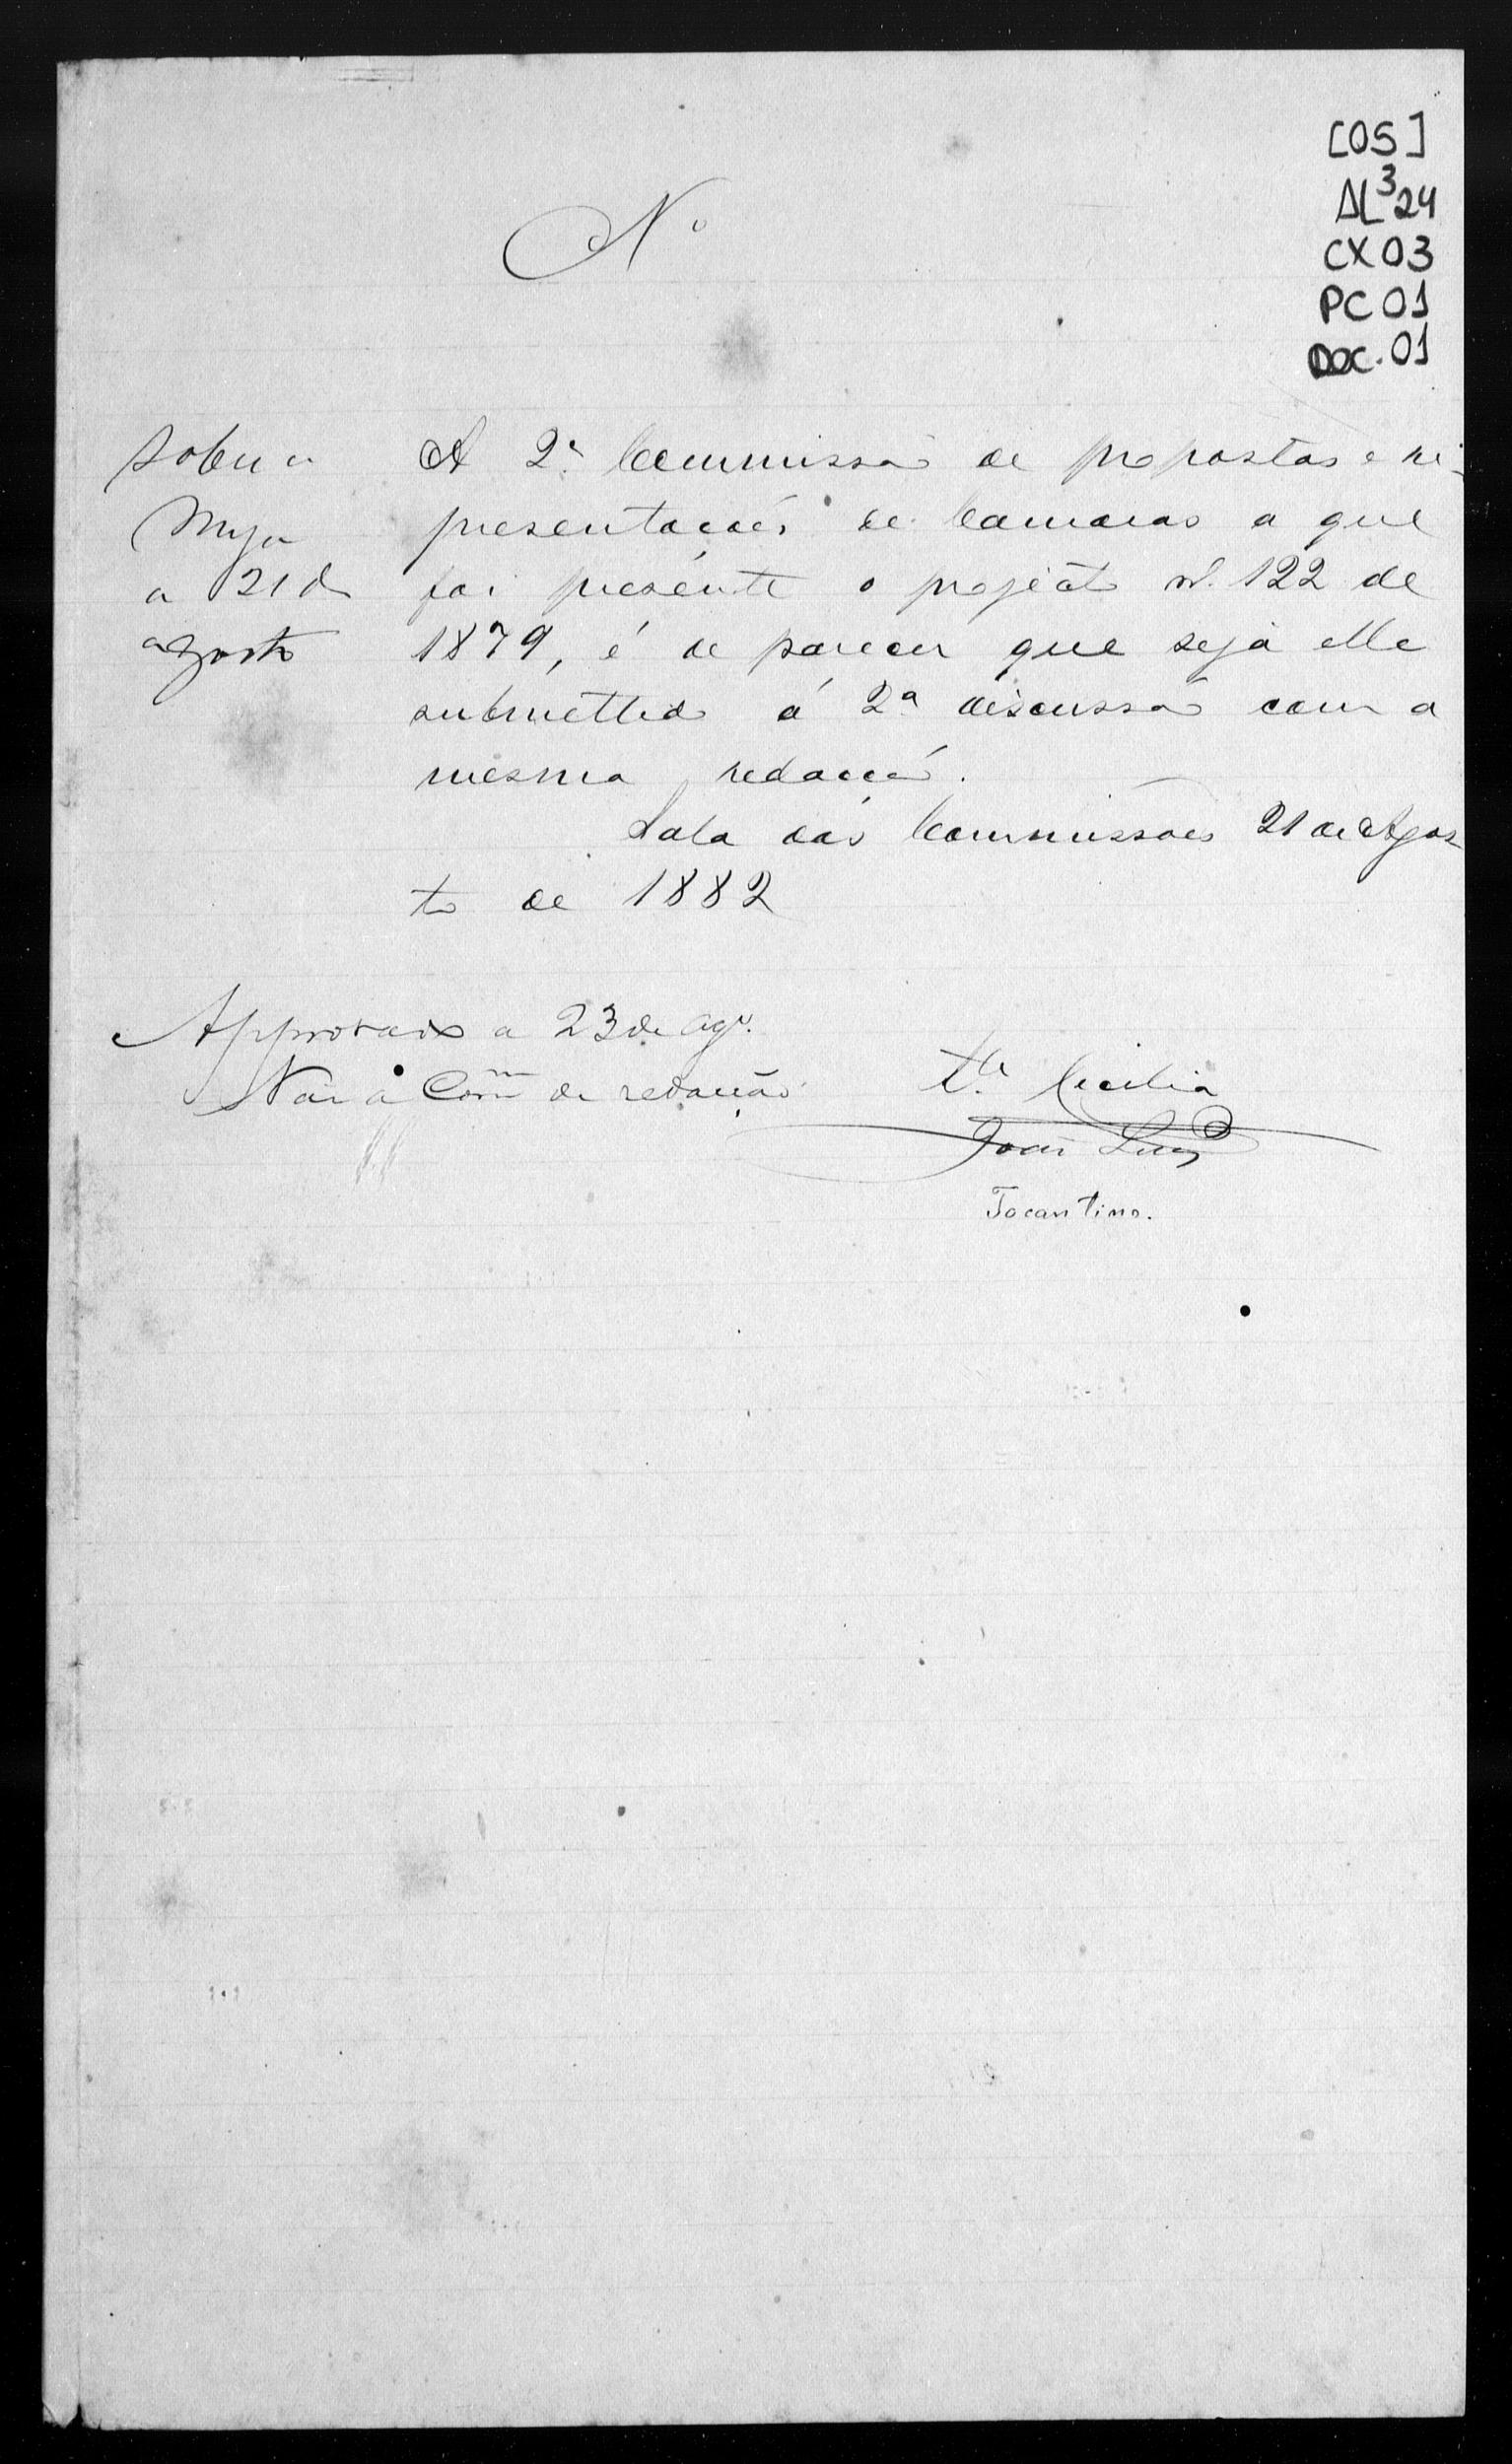 [05]
AL³24
CX03
PC01
DOC.01
Nº
Sobre a
Mesa
a 21 de
agosto
A 2ª Commissão de propostas e re-
presentações de Camaras a que
foi presente o projecto nº 122 de
1879, é de parecer que seja elle
submettido á 2ª discussão com a
mesma redacção.
Sala das Commissões 21 de Agos-
to de 1882
Approvado a 23 de Agº.
Vai á Comm de redacção
Cecilia
João Luiz
Tocantins.